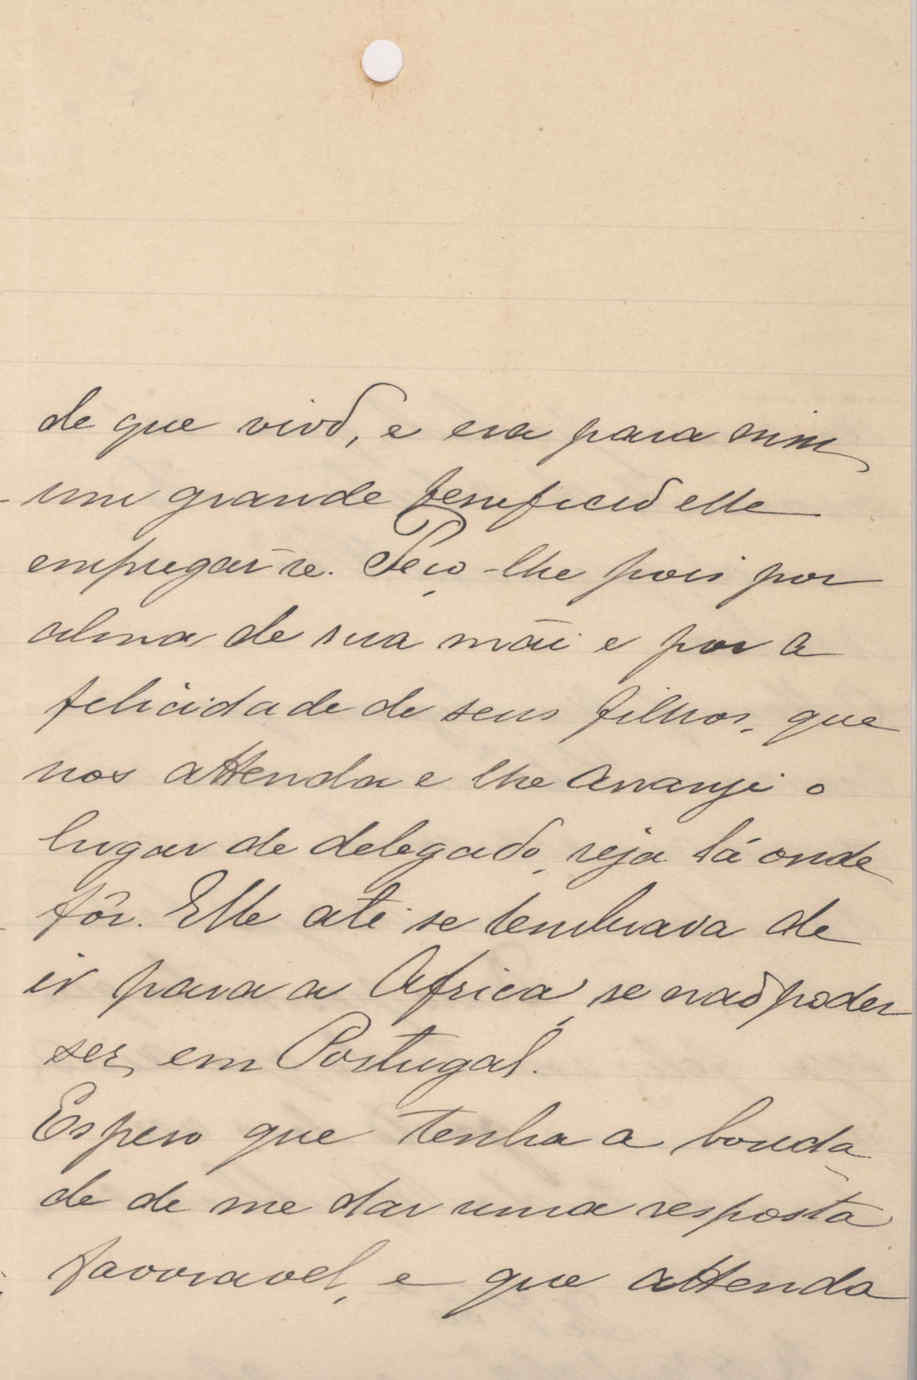 de que vivo, e era para mim
um grande beneficio elle
empregar-se. Peço-lhe pois por
alma de sua mãi e por a
felicidade de seus filhos, que
nos attenda e lhe arranje o
lugar de delegado, seja lá onde
fôr. Elle até se lembrava de
ir para a Africa, se não poder
ser, em Portugal.
Espero que tenha a bonda-
de de me dar uma resposta
favoravel, e que attenda